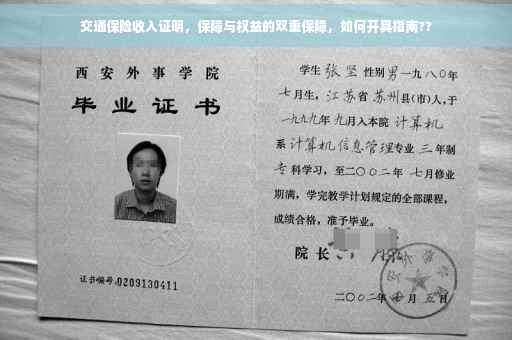 交通保险收入证明，保障与权益的双重保障，如何开具指南??
西安外事学院
毕业证书
证书编号:0209130411
学生张坚性别男一九八〇年
七月生，江苏省苏州县(市)人,于
一九九九年九月入本院计算机
系计算机信息管理专业三年制
专科学习，至二〇〇二年七月修业
期满，学完教学计划规定的全部课程，
成绩合格，准予毕业。
院长
二〇〇二年七月五日